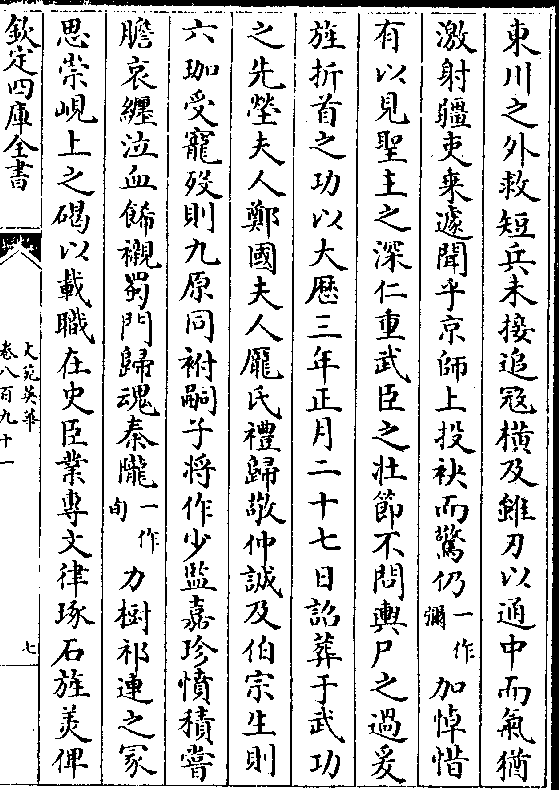 東川之外救短兵未接追冦横及雖刃以通中而氣猶
激射疆吏来遽聞乎京師上投袂而驚仍一作彌加悼惜
有以見聖主之深仁重武臣之壮節不問輿尸之過爰
旌折首之功以大歴三年正月二十七日詔葬于武功
之先塋夫人鄭國夫人龎氏禮歸敬仲誠及伯宗生則
六珈受寵殁則九原同祔嗣子将作少監嘉珍憤積嘗
膽哀纒泣血飾櫬蜀門歸魂秦隴一作甸力樹祁連之冢
思崇峴上之碣以載職在史臣業專文律琢石旌美俾
欽定四庫全書
文苑英華
卷八百九十一
七